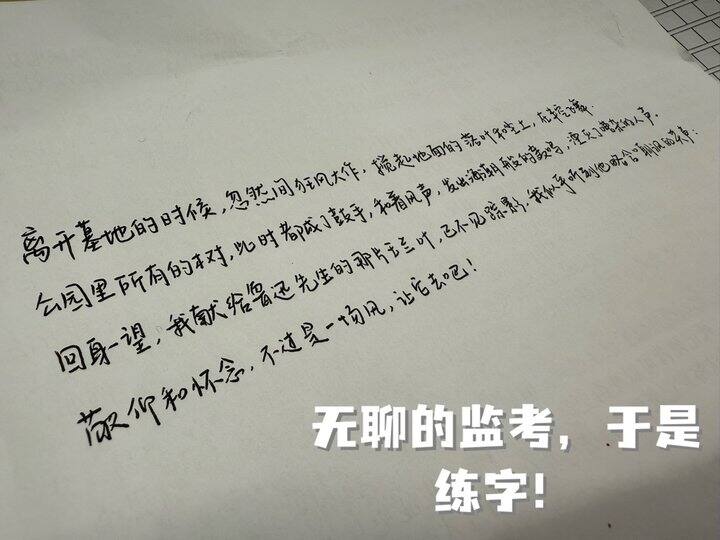 离开墓地的时候,忽然间狂风大作,搅起地面的落叶和尘土,在半空飞舞.
公园里所有的树,此时都成了鼓手,和着风声,发出海潮般的轰鸣,湮灭了嘈杂的人声.
回身一望,我献给鲁迅先生的那片玉兰叶,已不见踪影.我似乎听到他略含嘲讽的笑声:
敬仰和怀念,不过是一场风,让它去吧!
无聊的监考,于是
练字!